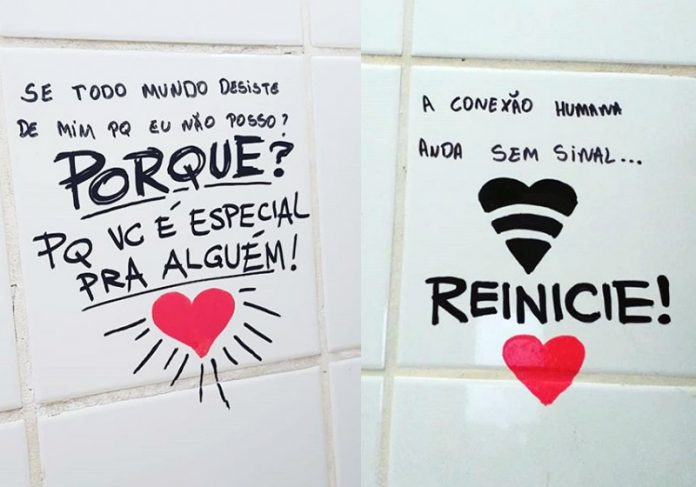 SE TODO MUNDO DESISTE
DE MIM PQ EU NÃO POSSO?
PORQUE?
PQ VC É ESPECIAL
PRA ALGUÉM!
A CONEXÃO HUMANA
ANDA SEM SINAL...
REINICIE!